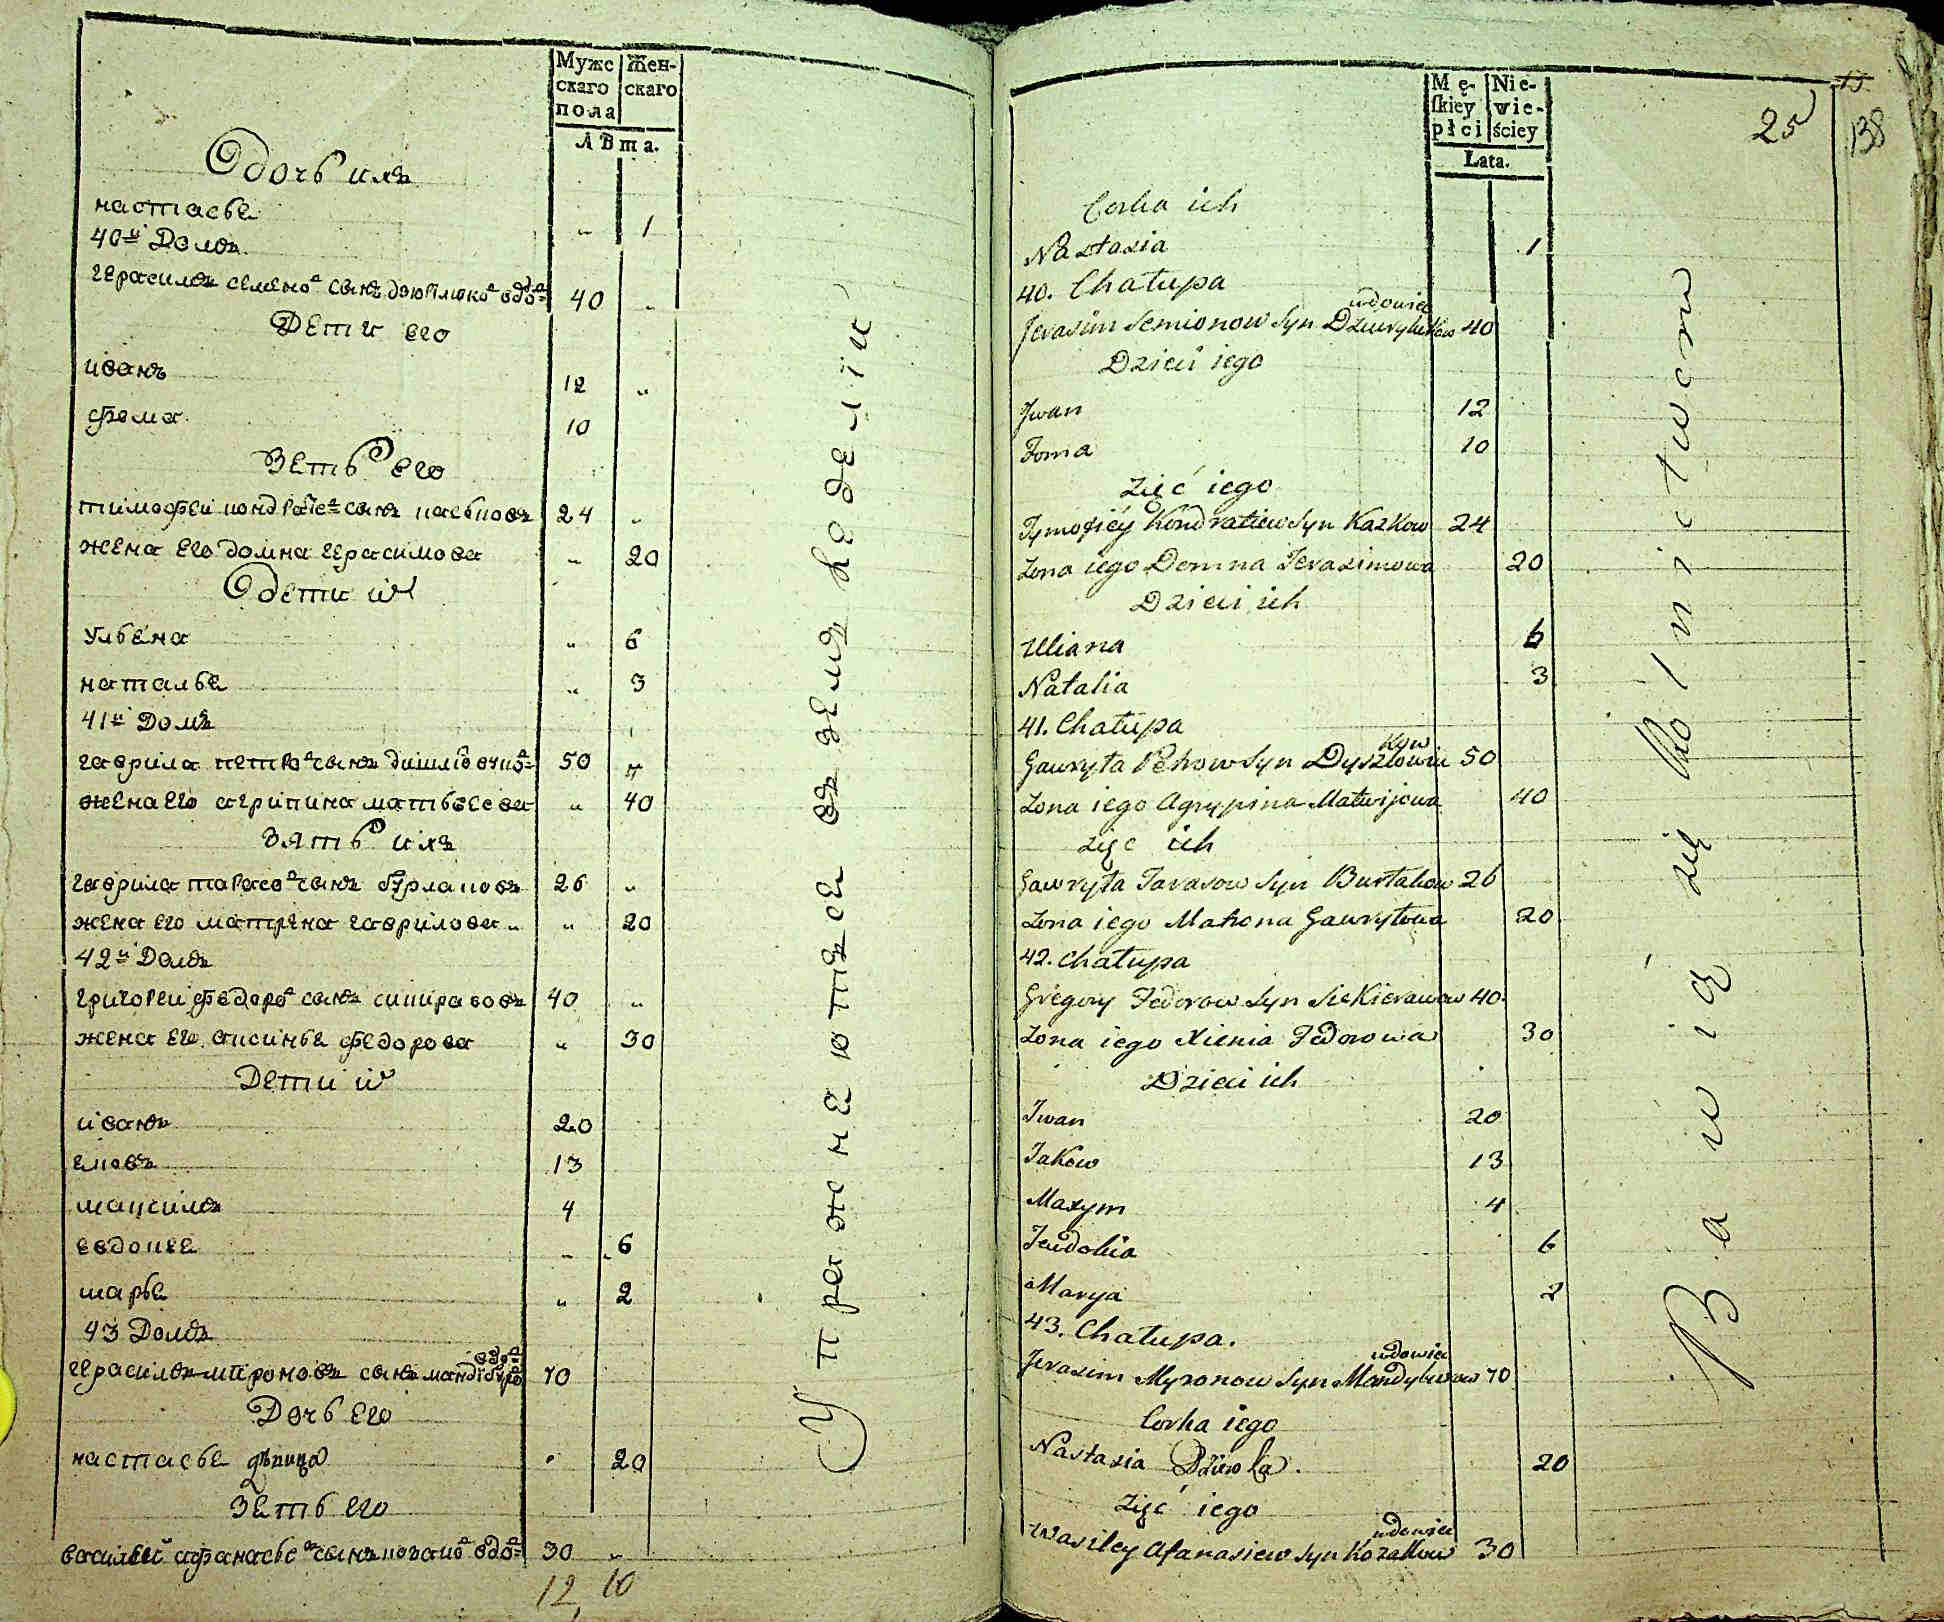 Мужс
скаго
пола
Жен-
скаго
Лѣта.
Дочь ихъ
настасья 1
40й Домъ
герасимъ семено сынъ 40
Дети его
иванъ 12
фома 10
Зеть его
тимофеи кондратье сынъ каськовъ 24
жена его домна герасимова 20
дети их
ульена 6
наталья 3
41й Домъ
гаврила петро сынъ 50
жена его агрипина матвеева 40
Зять ихъ
гаврила тарасо сынъ бурлаковъ 26
жена его матрена гаврилова 20
42й Домъ
григореи федоро сынъ сикираковъ 40
жена его аксинья федорова 30
Дети их
иванъ 20
яковъ 13
максимъ 4
евдокея 6
марья 2
43 Домъ
герасимъ мироновъ сынъ 70
Дочь его
настасья девица 20
Зеть его
василеи афанасье сынъ 30
12, 10
Упражнеютъся въ земледелiи
Mę-
skiey
płci
Nie-
wie-
ściey
Lata.
15
25
138
Corka ich
Nastasia 1
40. Chałupa
udowiec
Jerasim Semionow Syn 40
Dzieci iego
Jwan 12
Foma 10
Zięć iego
Tymofiéy Kondratiew Syn Kazkow 24
Zona iego Domna Jerasimowa 20
Dzieci ich
Uliana 6
Natalia 3
41. Chałupa
Gawryła Petrow Syn Dyszlowiu 50
kow
Zona iego Agrypina Matwijowa 40
Zięc ich
Gawryła Tarasow Syn Burłakow 26
Zona iego Matrona Gawryłowa 20
42. Chałupa
Gregory Fedorow Syn Siekierawow 40
Zona iego Xienia Fedorowa 30
Dzieci ich
Jwan 20
Jakow 13
Maxym 4
Jewdokia 6
Marya 2
43. Chałupa.
udowiec
Jerasim Myronow Syn Mandyburow 70
Corka iego
Nastasia Dziewka. 20
Zięć iego
udowiec
Wasiley Afanasiew Syn Kozakow 30
Bawią się Rolnictwem